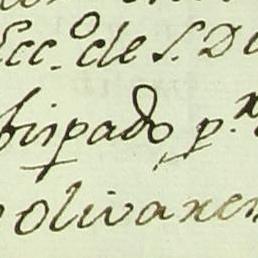 Ecc.º de S. D
bispado p.r
olivaren